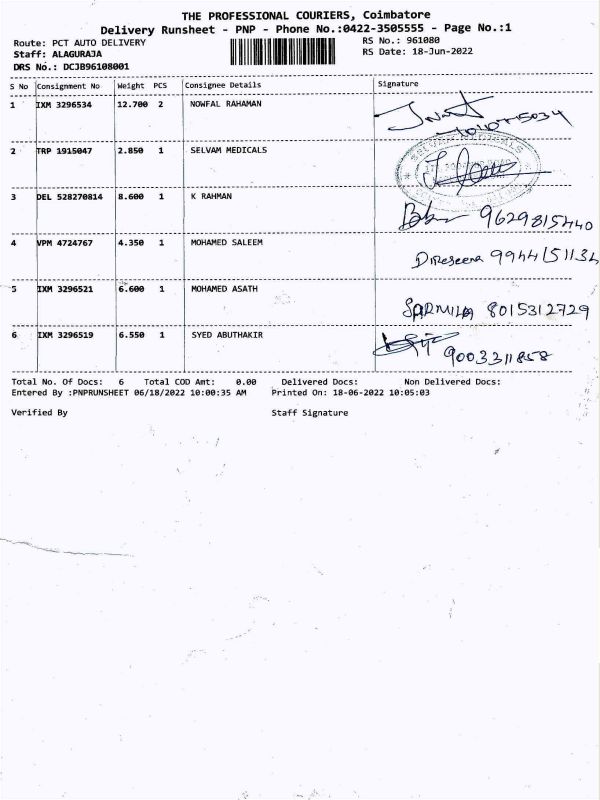 THE PROFESSIONAL COURIERS, Coimbatore
Delivery Runsheet - PNP - Phone No.:0422-3505555 - Page No.:1
Route: PCT AUTO DELIVERY
RS No.: 961080
Staff: ALAGURAJA
RS Date: 18-Jun-2022
DRS No.: DCJB96108001
S No Consignment No Weight PCS Consignee Details Signature
1 IXM 3296534 12.700 2 NOWFAL RAHAMAN
2 TRP 1915047 2.850 1 SELVAM MEDICALS
SELVAM MEDICALS
3 DEL 528270814 8.600 1 K RAHMAN
9629815440
4 VPM 4724767 4.350 1 MOHAMED SALEEM
99441 51134
5 IXM 3296521 6.600 1 MOHAMED ASATH
SARMILA 8015312729
6 IXM 3296519 6.550 1 SYED ABUTHAKIR
9003311858
Total No. Of Docs: 6 Total COD Amt: 0.00 Delivered Docs: Non Delivered Docs:
Entered By :PNPRUNSHEET 06/18/2022 10:00:35 AM Printed On: 18-06-2022 10:05:03
Verified By Staff Signature